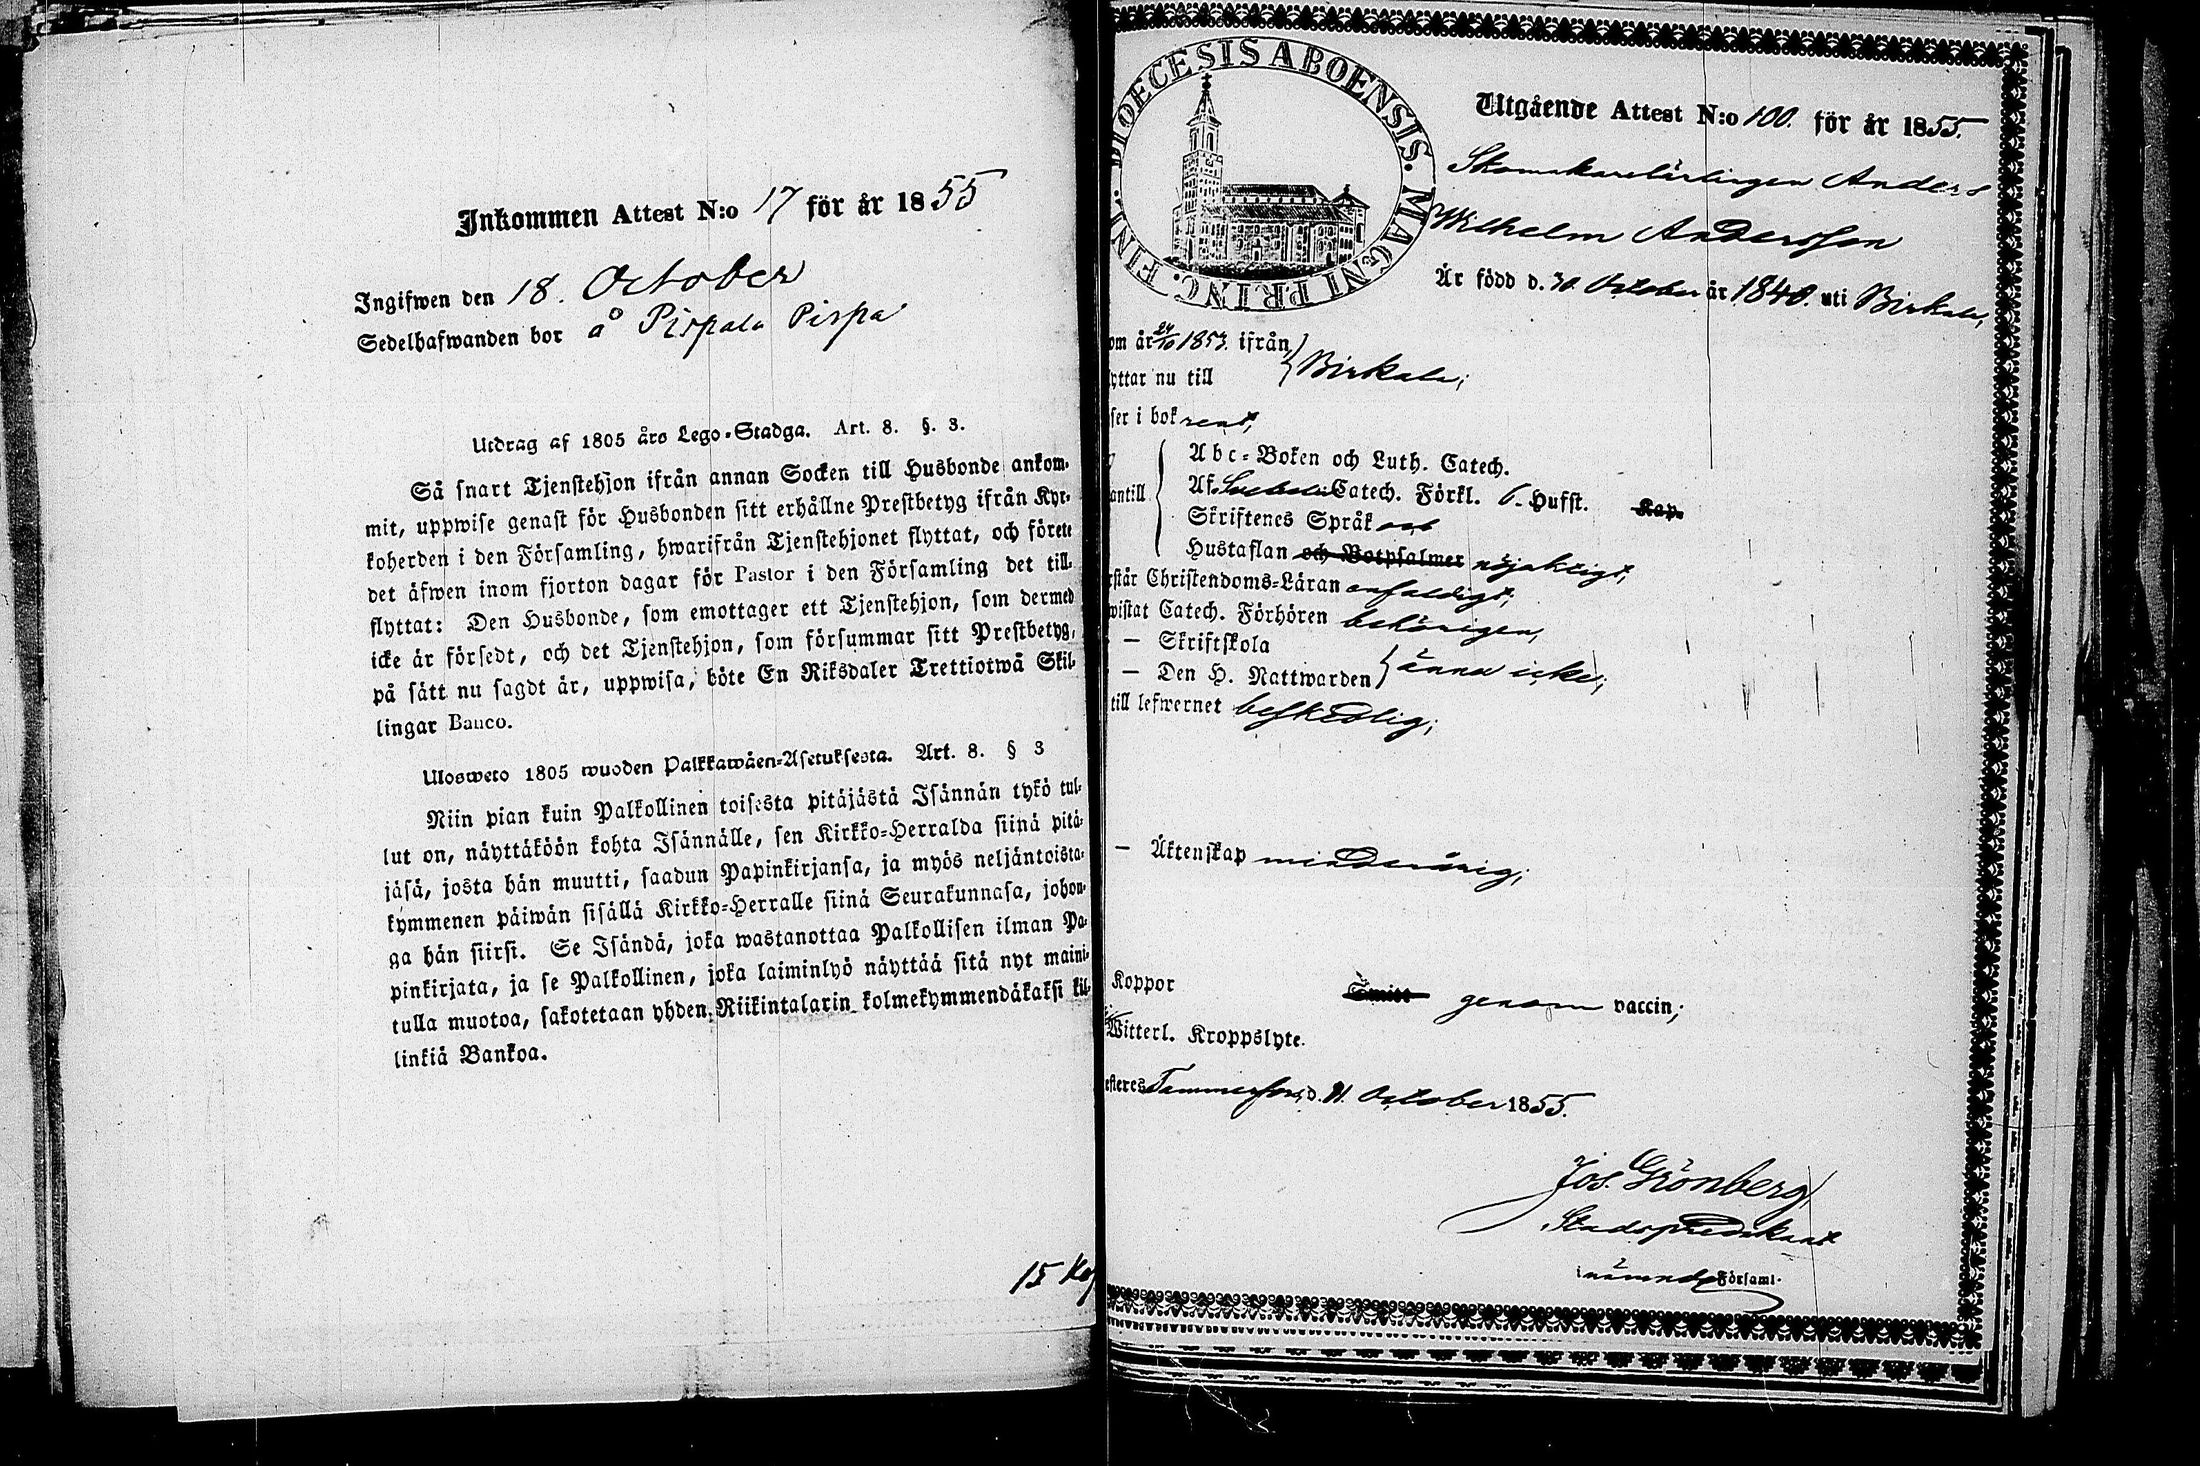 Inkommen Attest N:o 17 för år 1855
Ingifwen den 18. October
Sedelhafwanden bor å Pispala Pispa
Utdrag af 1805 års Lego-Stadga. Art. 8. §. 3.
Så snart Tjenstehjon ifrån annan Socken till Husbonde ankom-
mit, uppwise genast för Husbonden sitt erhållne Prestbetyg ifrån Kyr-
koherden i den Församling, hwarifrån Tjenstehjonet flyttat, och förete
det äfwen inom fjorton dagar för Pastor i den Församling det till-
flyttat: Den Husbonde, som emottager ett Tjenstehjon, som dermed
icke är försedt, och det Tjenstehjon, som försummar sitt Prestbetyg,
på sätt nu sagdt är, uppwisa, böte En Riksdaler Trettiotwå Skil-
lingar Banco.
Ulosweto 1805 wuoden Palkkawäen-Asetuksesta. Art. 8. § 3
Niin pian kuin Palkollinen toisesta pitäjästä Isännän tykö tul-
lut on, näyttäköön kohta Isännälle, sen Kirkko-Herralda siinä pitä-
jäsä, josta hän muutti, saadun Papinkirjansa, ja myös neljäntoista-
kymmenen päiwän sisällä Kirkko-Herralle siinä Seurakunnasa, johon-
ga hän siirsi. Se Isändä, joka wastanottaa Palkollisen ilman Pa-
pinkirjata, ja se Palkollinen, joka laiminlyö näyttää sitä nyt maini-
tulla muotoa, sakotetaan yhden Riikintalarin kolmekymmendäkaksi kil-
linkiä Bankoa.
15 Kop
DIOECESIS ABOENSIS. MAGNI PRINC. FINL.
Utgående Attest N:o 100. för år 1855.
Skomakarelärlingen Anders
Wilhelm Andersson
Är född d. 30 October år 1840. uti Birkala,
om år 24/10 1853. ifrån
yttar nu till Birkala;
ser i bok rent,
Abc-Boken och Luth. Catech.
antill Af Svebelii Catech. Förkl. 6. Hufst. Kap.
Skriftenes Språk och
Hustaflan och Botpsalmer nöjaktigt,
rstår Christendoms-Läran enfaldigt,
wistat Catech. Förhören behörigen,
— Skriftskola
— Den H. Nattwarden ännu icke;
till lefwernet beskedlig;
— Äktenskap minderårig;
Koppor Smitt genom vaccin;
Witterl. Kroppslyte.
esteres Tammerfors, d. 11. October 1855.
Jos. Grönberg
Stadspredikant
i nämnde Församl.